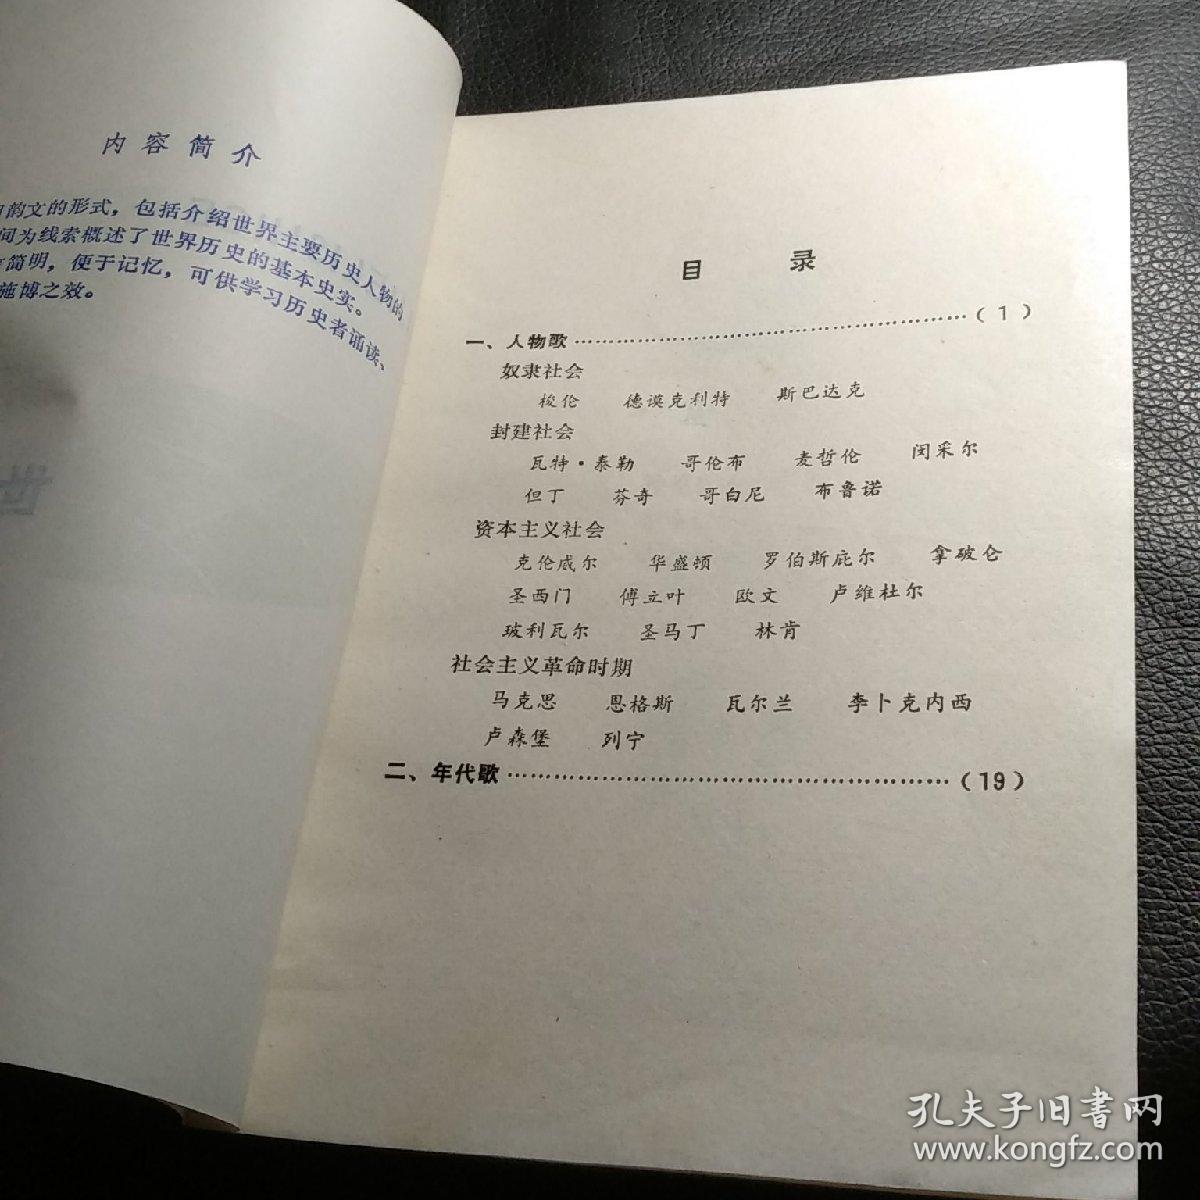 内容简介
韵文的形式，包括介绍世界主要历史人物的
间为线索概述了世界历史的基本史实。
简明，便于记忆，可供学习历史者诵读、
施博之效。
目录
一、人物歌……………………………………………（1）
奴隶社会
梭伦 德谟克利特 斯巴达克
封建社会
瓦特·泰勒 哥伦布 麦哲伦 闵采尔
但丁 芬奇 哥白尼 布鲁诺
资本主义社会
克伦威尔 华盛顿 罗伯斯庇尔 拿破仑
圣西门 傅立叶 欧文 卢维杜尔
玻利瓦尔 圣马丁 林肯
社会主义革命时期
马克思 恩格斯 瓦尔兰 李卜克内西
卢森堡 列宁
二、年代歌……………………………………………（19）
孔夫子旧书网
www.kongfz.com